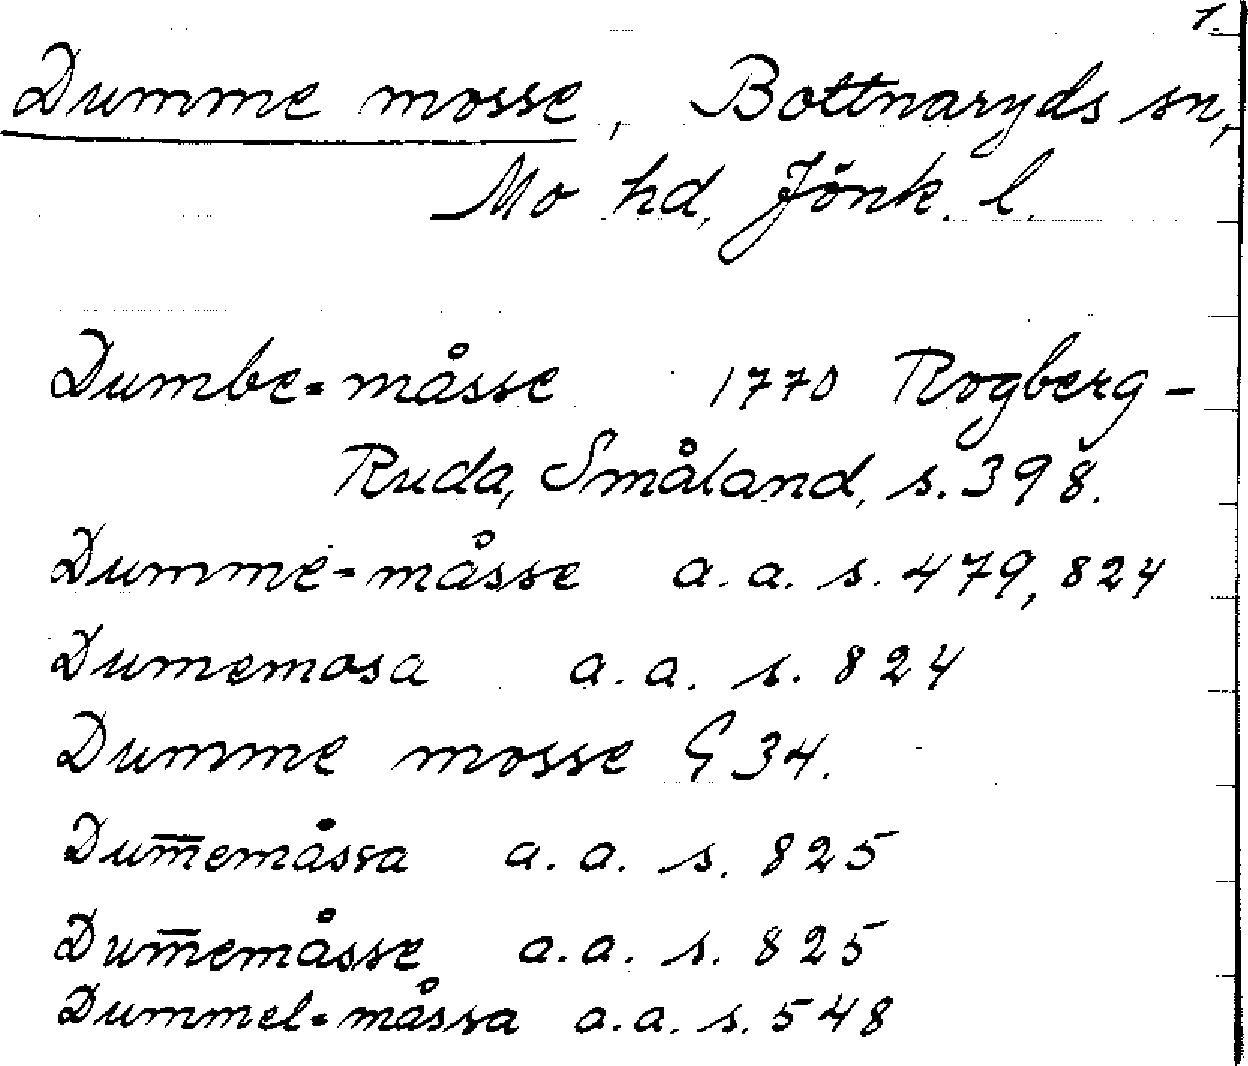 1.
Dumme mosse, Bottnaryds sn,
Mo hd, Jönk. l.
Dumbe-måsse 1770 Rogberg-
Ruda, Småland, s. 398.
Dumme-måsse a. a. s. 479, 824
Dumemosa a. a. s. 824
Dumme mosse G 34.
Dum̅emåssa a. a. s. 825
Dum̅emåsse a. a. s. 825
Dummel-måssa a. a. s. 548